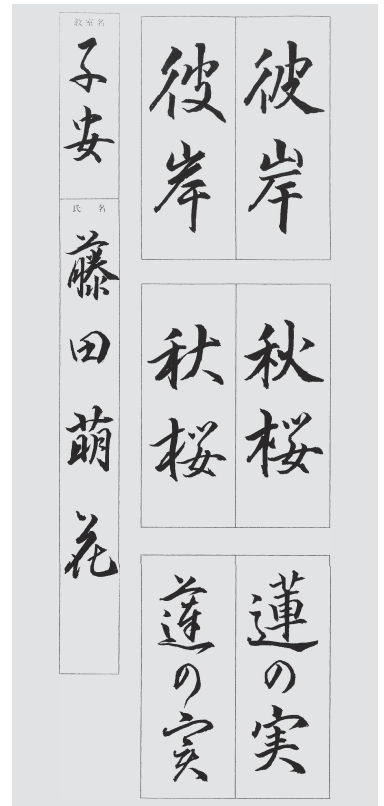 彼岸
彼岸
秋桜
秋桜
蓮の実
蓮の実
教室名
子安
氏名
藤田萌花